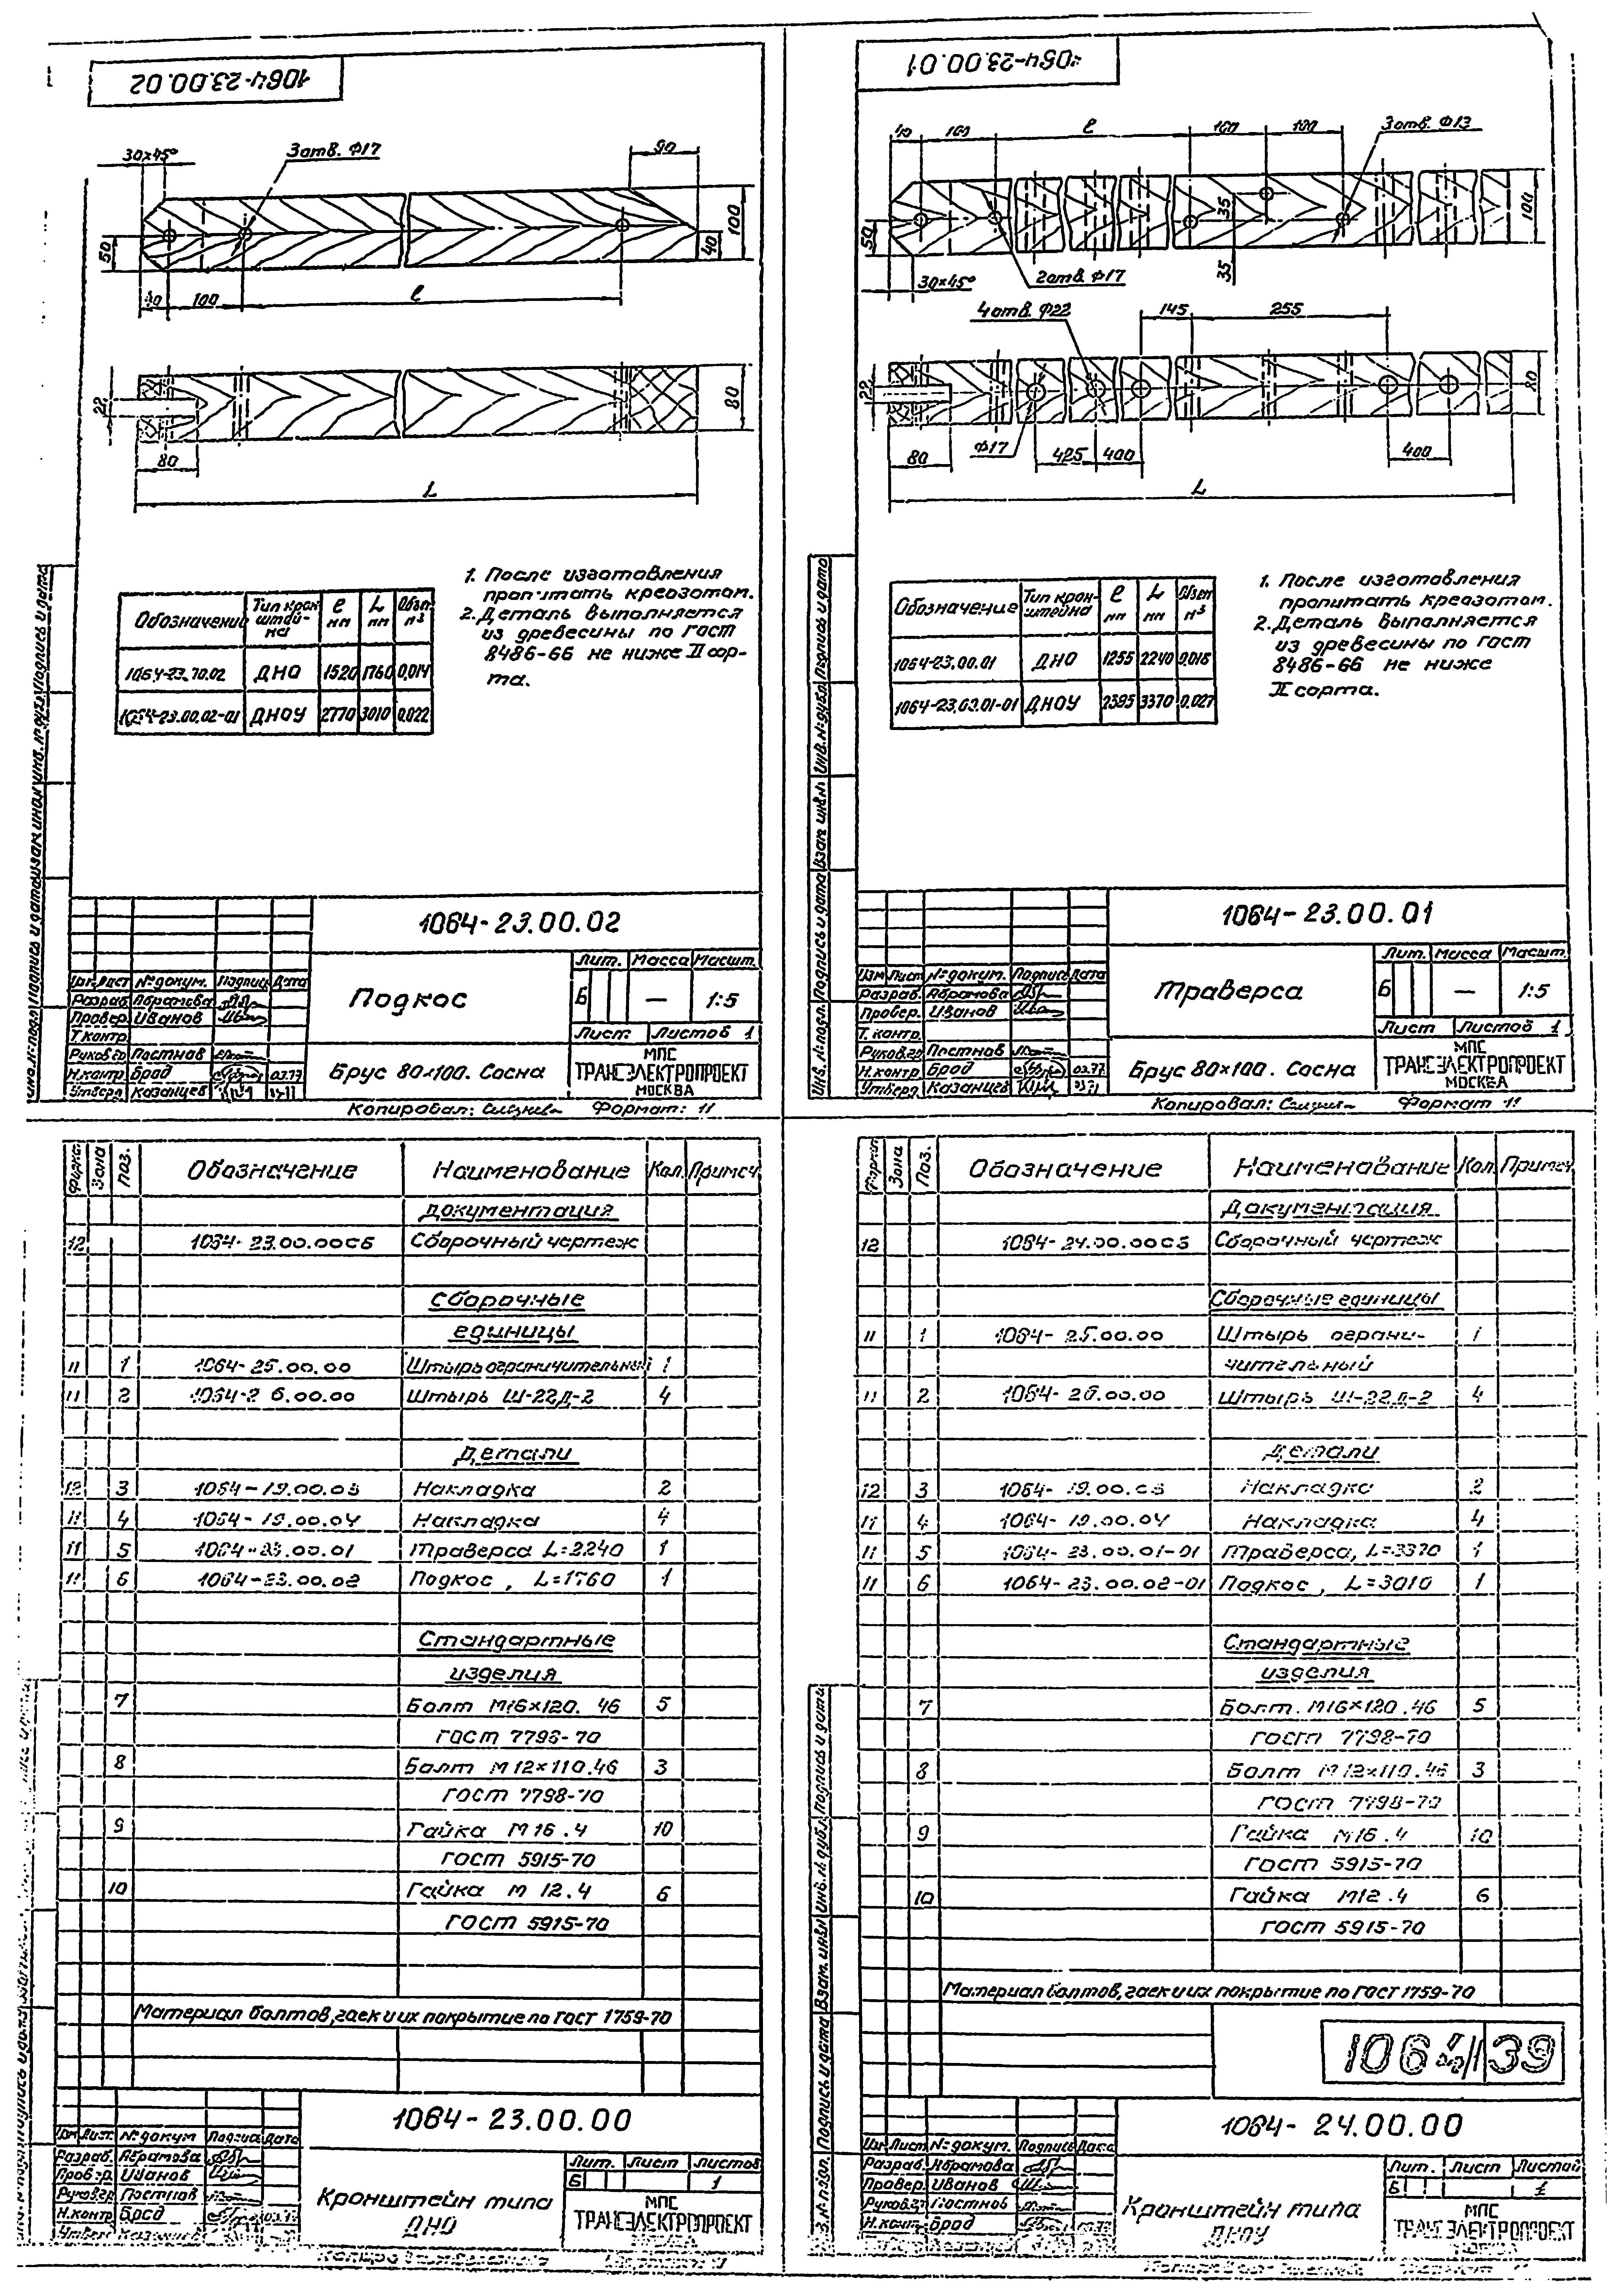 1064-23.00.02
30×45°
3 отв. Ф17
90
50
100
40
40
100
ℓ
22
80
80
L
1. После изготовления
пропитать креозотом.
2. Деталь выполняется
из древесины по ГОСТ
8486-66 не ниже II сор-
та.
Обозначение Тип крон- ℓ L Объем
штей- мм мм м³
на
1064-23.00.02 ДНО 1520 1760 0,014
1064-23.00.02-01 ДНОУ 2770 3010 0,022
1064-23.00.02
Изм Лист № докум. Подпись Дата
Разраб. Абрамова
Провер. Иванов
Т. контр.
Руков.гр Постнов
Н.контр Брод 03.77
Утверд Казанцев
Подкос
Лит. Масса Масшт.
Б — 1:5
Лист Листов 1
Брус 80×100. Сосна
МПС
ТРАНСЭЛЕКТРОПРОЕКТ
МОСКВА
Копировал: Формат: 11
1064-23.00.01
40 100 ℓ 100 100 3 отв. Ф13
50
35
35
100
30×45°
2 отв. Ф17
4 отв. Ф22
145 255
22
80
80
Ф17
425 400
400
L
1. После изготовления
пропитать креозотом.
2. Деталь выполняется
из древесины по ГОСТ
8486-66 не ниже
II сорта.
Обозначение Тип крон- ℓ L Объем
штейна мм мм м³
1064-23.00.01 ДНО 1255 2240 0,018
1064-23.00.01-01 ДНОУ 2395 3370 0,027
1064-23.00.01
Изм Лист № докум. Подпись Дата
Разраб. Абрамова
Провер. Иванов
Т. контр.
Руков.гр Постнов
Н.контр. Брод 03.77
Утверд. Казанцев
Траверса
Лит. Масса Масшт.
Б — 1:5
Лист Листов 1
Брус 80×100. Сосна
МПС
ТРАНСЭЛЕКТРОПРОЕКТ
МОСКВА
Копировал: Формат 11
Формат Зона Поз. Обозначение Наименование Кол. Примеч.
Документация
12 1064-23.00.00СБ Сборочный чертеж
Сборочные
единицы
11 1 1064-25.00.00 Штырь ограничительный 1
11 2 1064-26.00.00 Штырь Ш-22Д-2 4
Детали
12 3 1064-19.00.03 Накладка 2
11 4 1064-19.00.04 Накладка 4
11 5 1064-23.00.01 Траверса L=2240 1
11 6 1064-23.00.02 Подкос, L=1760 1
Стандартные
изделия
7 Болт М16×120.46 5
ГОСТ 7798-70
8 Болт М12×110.46 3
ГОСТ 7798-70
9 Гайка М16.4 10
ГОСТ 5915-70
10 Гайка М12.4 6
ГОСТ 5915-70
Материал болтов, гаек и их покрытие по ГОСТ 1759-70
1064-23.00.00
Изм Лист № докум Подпись Дата
Разраб. Абрамова
Провер. Иванов
Руков.гр Постнов
Н.контр Брод
Утверд Казанцев
Кронштейн типа
ДНО
Лит. Лист Листов
Б 1
МПС
ТРАНСЭЛЕКТРОПРОЕКТ
Формат Зона Поз. Обозначение Наименование Кол. Примеч
Документация
12 1064-24.00.00СБ Сборочный чертеж
Сборочные единицы
11 1 1064-25.00.00 Штырь ограни- 1
чительный
11 2 1064-26.00.00 Штырь Ш-22Д-2 4
Детали
12 3 1064-19.00.03 Накладка 2
11 4 1064-19.00.04 Накладка 4
11 5 1064-23.00.01-01 Траверса, L=3370 1
11 6 1064-23.00.02-01 Подкос, L=3010 1
Стандартные
изделия
7 Болт. М16×120.46 5
ГОСТ 7798-70
8 Болт М12×110.46 3
ГОСТ 7798-70
9 Гайка М16.4 10
ГОСТ 5915-70
10 Гайка М12.4 6
ГОСТ 5915-70
Материал болтов, гаек и их покрытие по ГОСТ 1759-70
39
1064-24.00.00
Изм Лист № докум. Подпись Дата
Разраб. Абрамова
Провер. Иванов
Руков.гр Постнов
Н.контр. Брод
Кронштейн типа
ДНОУ
Лит. Лист Листов
Б 1
МПС
ТРАНСЭЛЕКТРОПРОЕКТ